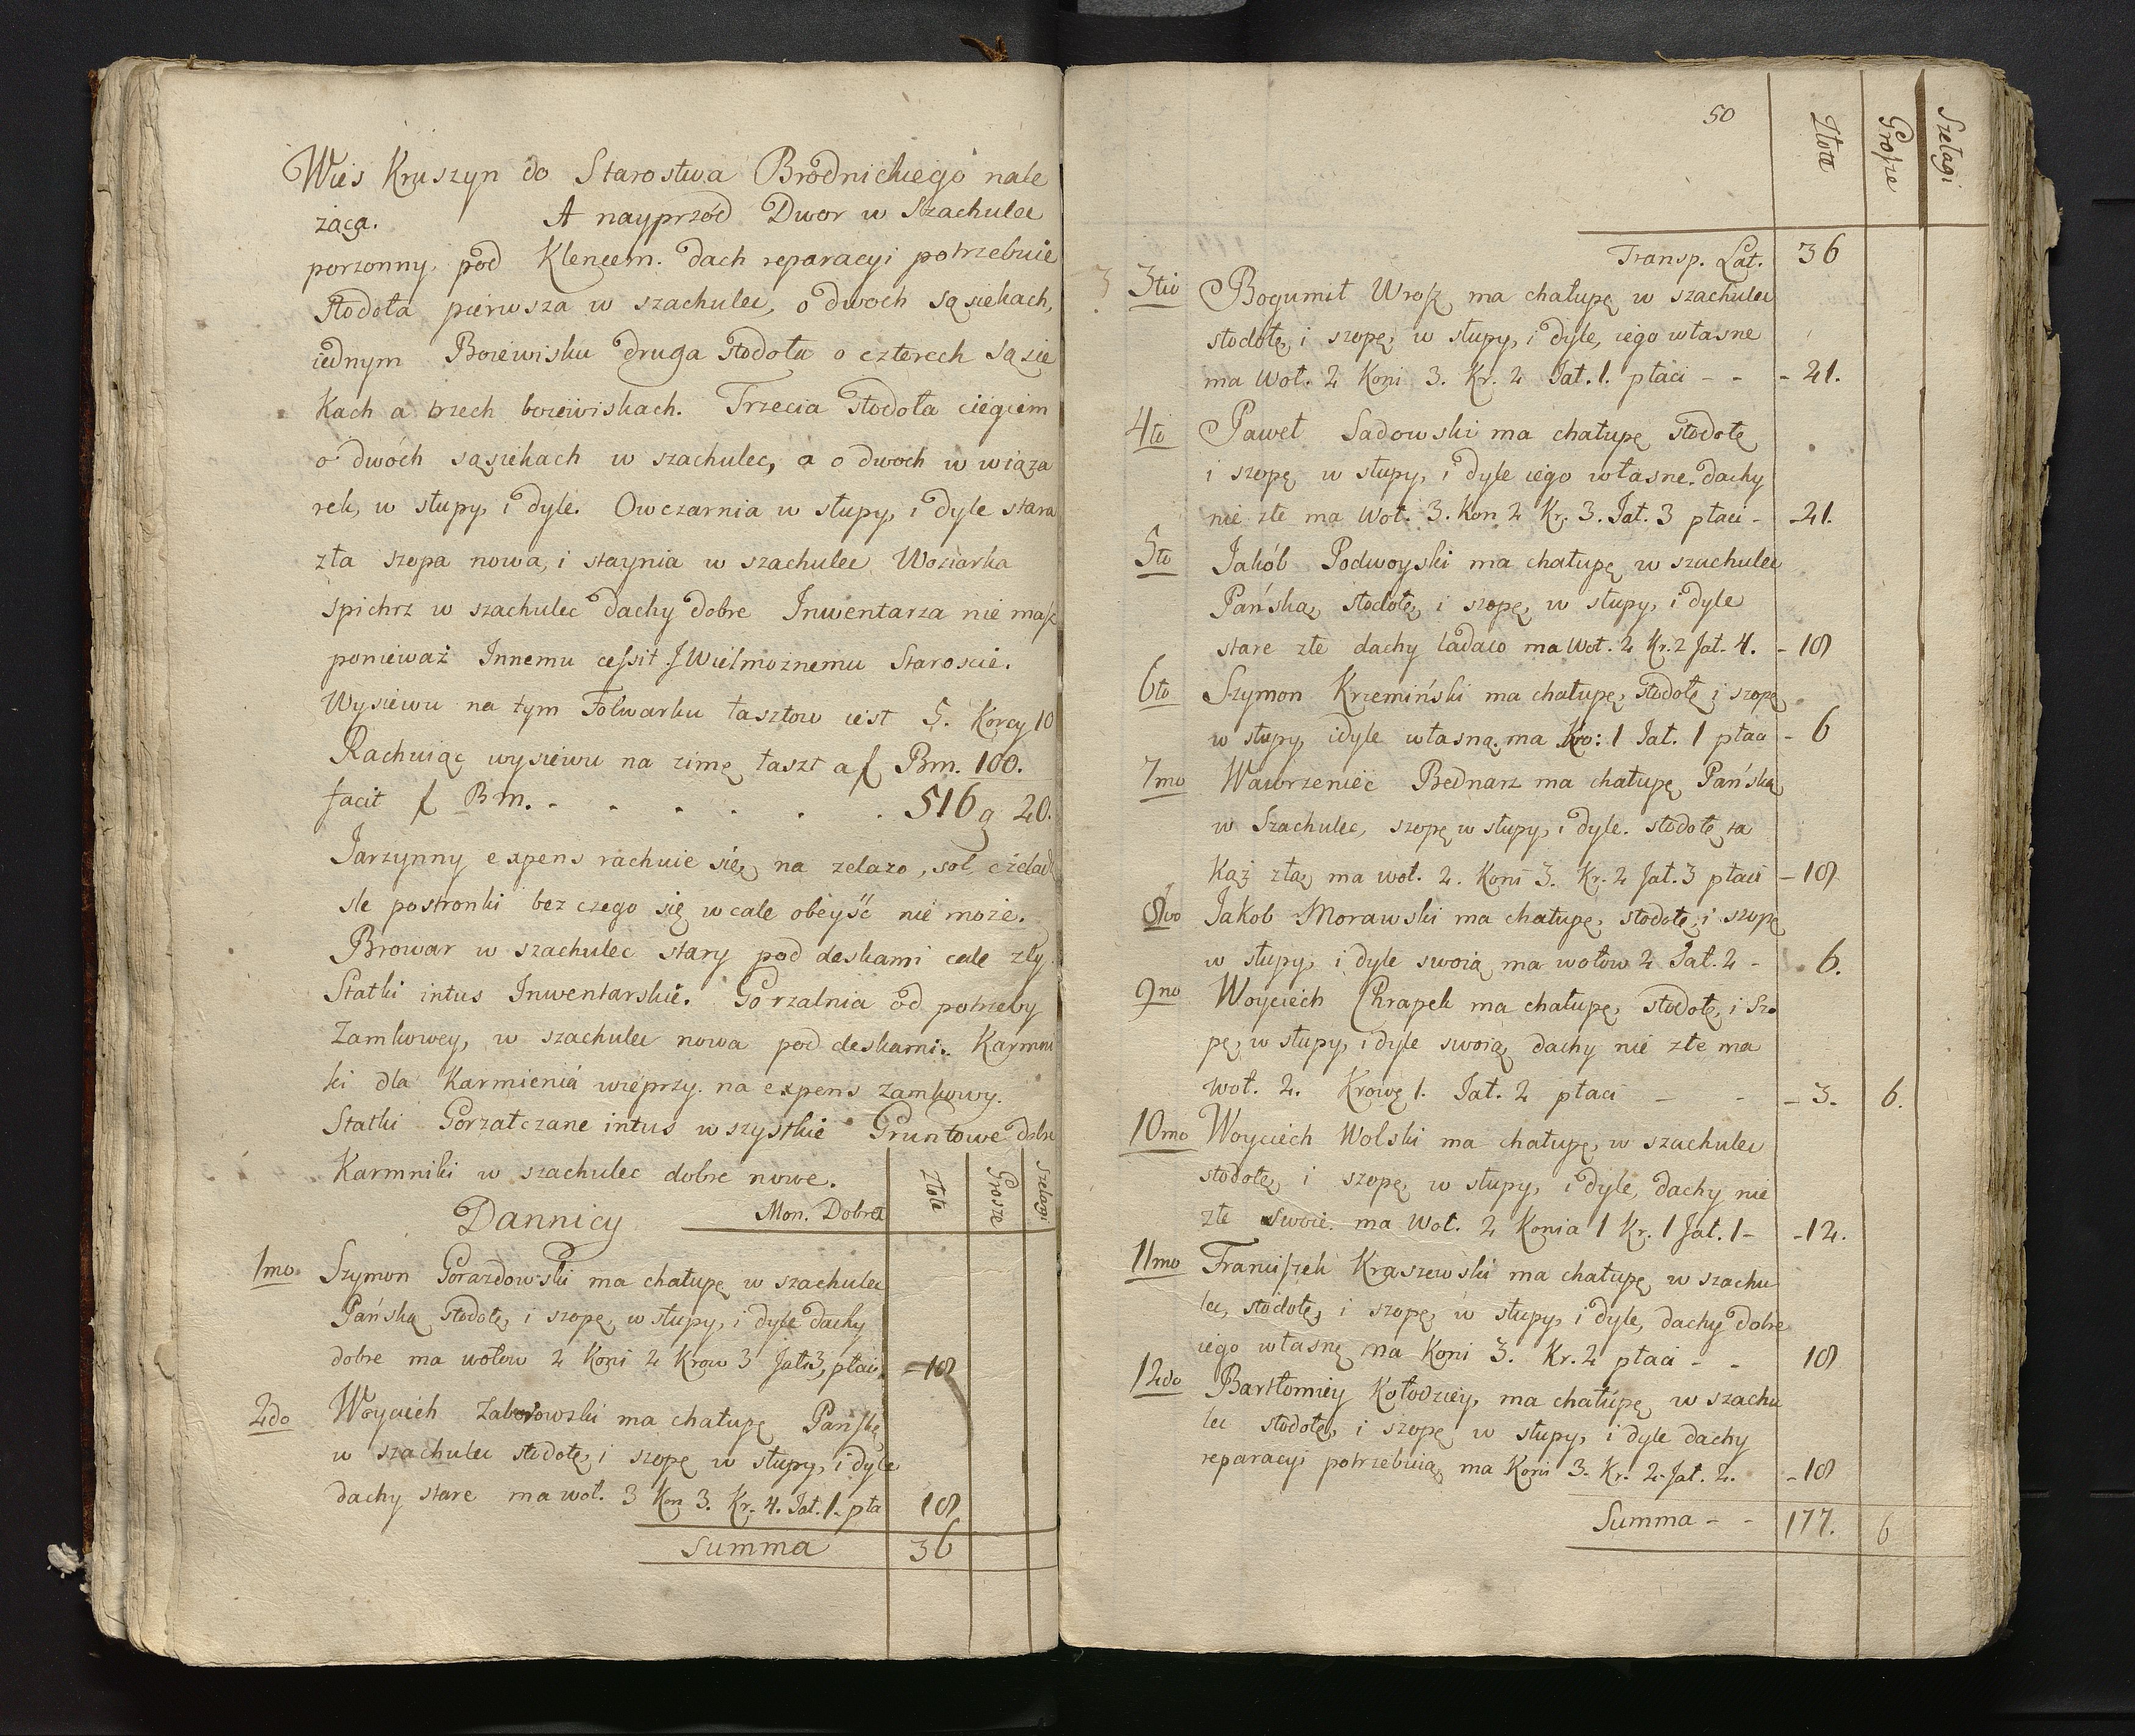 Wieś Kruszyn do Starostwa Brodnickiego nale
żąca. A nayprzód Dwor w Szachulec
porzonny, pod Klencem. dach reparacyi potrzebuie
stodoła pierwsza w szachulec, o dwoch sąsiekach,
iednym Boiewisku druga stodoła o czterech sąsie
kach a trzech boiewiskach. Trzecia stodoła ciegiem
o dwóch sąsiekach w szachulec, a o dwoch w wiąza
rek, w słupy, i dyle. Owczarnia w słupy, i dyle stara
zła szopa nowa, i staynia w szachulec Woziarka
spichrz w szachulec dachy dobre Inwentarza nie masz
ponieważ Innemu cessit J Wielmożnemu Staroscie.
Wysiewu na tym Folwarku łasztow iest 5. Korcy 10
Rachuiąc wysiewu na zimę łaszt a f Bm. 100.
facit f Bm. - . . . . . 516 g 20.
Jarzynny expens rachuie się na zelazo, sol, czeladź
sle postronki bez czego się wcale obeyść nie może.
Browar w szachulec stary pod deskami cale zły.
Statki intus Inwentarskie. Gorzalnia od potrzeby
Zamkowey, w szachulec nowa pod deskami. Karmni
ki dla Karmienia wieprzy. na expens zamkowy.
Statki Gorzałczane intus wszystkie Gruntowe dobre
Karmniki w szachulec dobre nowe.
Złote Grosze Szelągi
Dannicy Mon. Dobra
1mo Szymon Gorazdowski ma chałupę w szachulec
Pańską stodołę, i szopę, w słupy, i dyle dachy
dobre ma wołow 2 Koni 2 Krow 3 Jał. 3, płaci - 18
2do Woyciech Zaborowski ma chałupę Pańską
w szachulec stodołę, i szopę w słupy, i dyle
dachy stare ma woł. 3 Kon 3. Kr. 4. Jał. 1. pła 18
Summa 36
50
Złote Grosze Szelągi
Transp. Lat. 36
3tio Bogumił Wrosz ma chałupę w szachulec
stodołę, i szopę, w słupy, i dyle, iego własne
ma Woł. 2 Koni 3. Kr. 2 Jał. 1. płaci - - - 21.
4to Paweł Sadowski ma chałupę stodołę
i szopę w słupy, i dyle iego własne. dachy
nie złe ma Woł. 3. Kon 2 Kr. 3. Jał. 3 płaci - - 21.
5to Jakób Podwoyski ma chałupę w szachulec
Pańską, stodołę, i szopę, w słupy, i dyle
stare złe dachy ladaco ma Woł. 2 Kr. 2 Jał. 4. - 18
6to Szymon Krzemiński ma chałupę, stodołę i szopę
w słupy, i dyle własną. ma Kro: 1 Jał. 1 płaci - 6
7mo Wawrzeniec Bednarz ma chałupę Pańską
w Szachulec, szopę w słupy, i dyle. stodołę ta
kąż złą, ma woł. 2. Koni 3. Kr. 2 Jał. 3 płaci - 18
8vo Jakob Morawski ma chałupę, stodołę, i szopę
w słupy, i dyle swoią ma wołow 2 Jał. 2 - . 6.
9no Woyciech Chrapek ma chałupę, stodołę, i Szo
pę, w słupy, i dyle swoią, dachy nie złe ma
Woł. 2. Krowę 1. Jał. 2 płaci - - - 3. 6.
10mo Woyciech Wolski ma chałupę, w szachulec
stodołę, i szopę, w słupy, i dyle, dachy nie
złe swoie. ma Woł. 2 Konia 1 Kr. 1 Jał. 1 - - 12.
11mo Franciszek Kraszewski ma chałupę w szachu
lec, stodołę, i szopę, w słupy, i dyle, dachy dobre
iego własnę ma Koni 3. Kr. 2 płaci - - 18
12do Bartłomiey Kołodziey, ma chałupę w szachu
lec stodołę, i szopę w słupy, i dyle dachy
reparacyi potrzebuią, ma Koni 3. Kr. 2. Jał. 2. - 18
Summa - - 177. 6